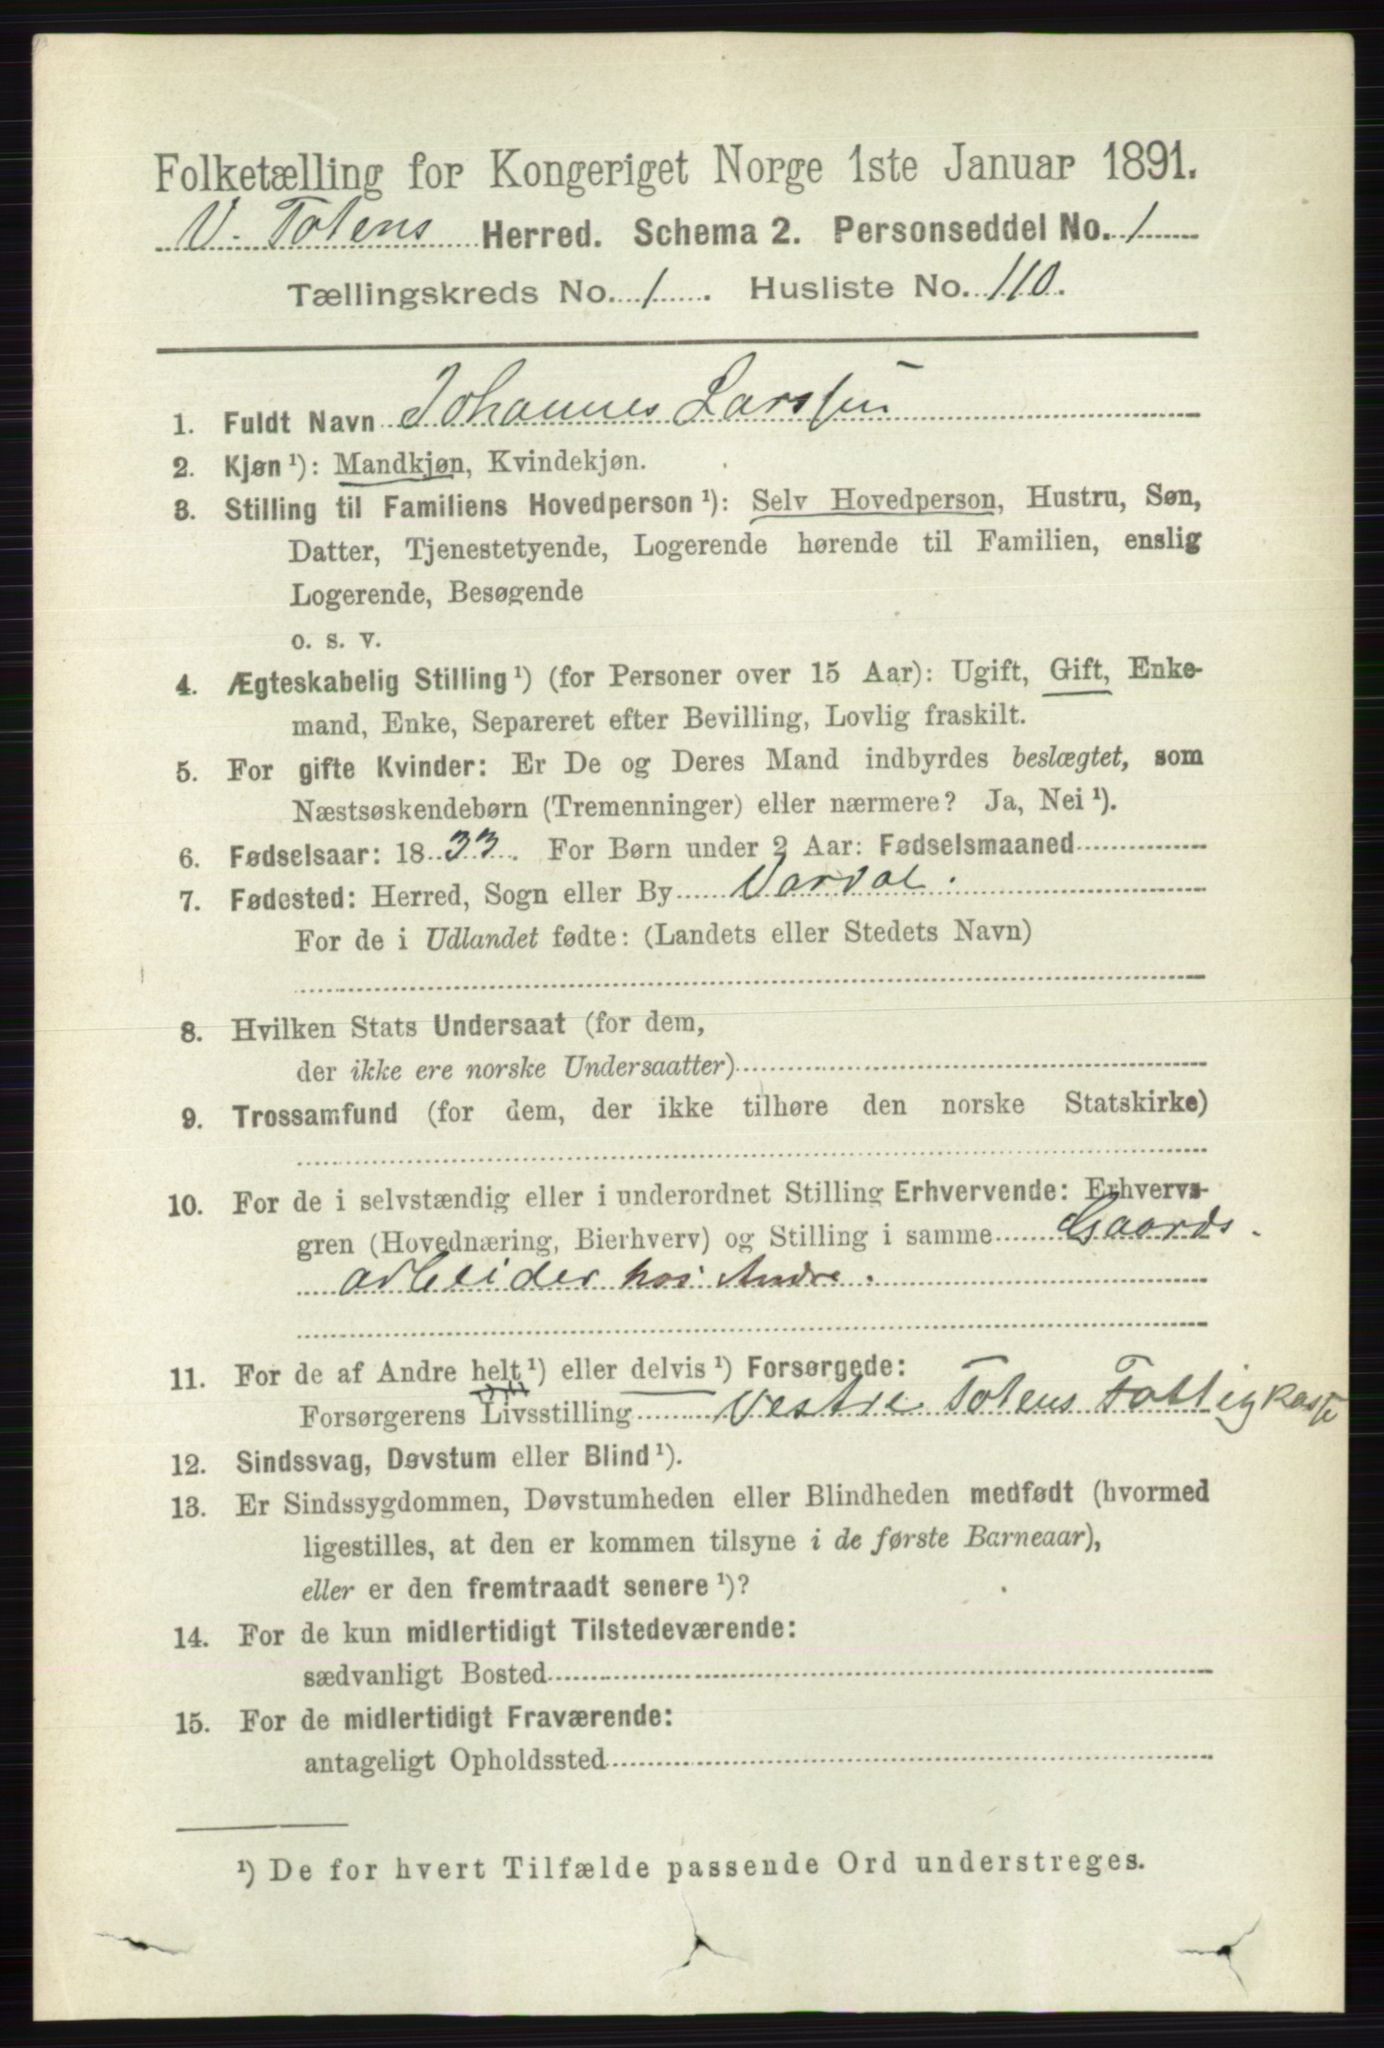 Folketælling for Kongeriget Norge 1ste Januar 1891.
V. Totens Herred. Schema 2. Personseddel No. 1
Tællingskreds No. 1. Husliste No. 110.
1. Fuldt Navn Johannes Larssen
2. Kjøn ¹): Mandkjøn, Kvindekjøn.
3. Stilling til Familiens Hovedperson ¹): Selv Hovedperson, Hustru, Søn,
Datter, Tjenestetyende, Logerende hørende til Familien, enslig
Logerende, Besøgende
o. s. v.
4. Ægteskabelig Stilling ¹) (for Personer over 15 Aar): Ugift, Gift, Enke-
mand, Enke, Separeret efter Bevilling, Lovlig fraskilt.
5. For gifte Kvinder: Er De og Deres Mand indbyrdes beslægtet, som
Næstsøskendebørn (Tremenninger) eller nærmere? Ja, Nei ¹).
6. Fødselsaar: 1833. For Børn under 2 Aar: Fødselsmaaned
7. Fødested: Herred, Sogn eller By Vardal.
For de i Udlandet fødte: (Landets eller Stedets Navn)
8. Hvilken Stats Undersaat (for dem,
der ikke ere norske Undersaatter)
9. Trossamfund (for dem, der ikke tilhøre den norske Statskirke)
10. For de i selvstændig eller i underordnet Stilling Erhvervende: Erhvervs-
gren (Hovednæring, Bierhverv) og Stilling i samme Gaards-
arbeider hos Andre.
11. For de af Andre helt ¹) eller delvis ¹) Forsørgede:
Forsørgerens Livsstilling Vestre Totens Fattigkasse
12. Sindssvag, Døvstum eller Blind ¹).
13. Er Sindssygdommen, Døvstumheden eller Blindheden medfødt (hvormed
ligestilles, at den er kommen tilsyne i de første Barneaar),
eller er den fremtraadt senere ¹)?
14. For de kun midlertidigt Tilstedeværende:
sædvanligt Bosted
15. For de midlertidigt Fraværende:
antageligt Opholdssted
¹) De for hvert Tilfælde passende Ord understreges.